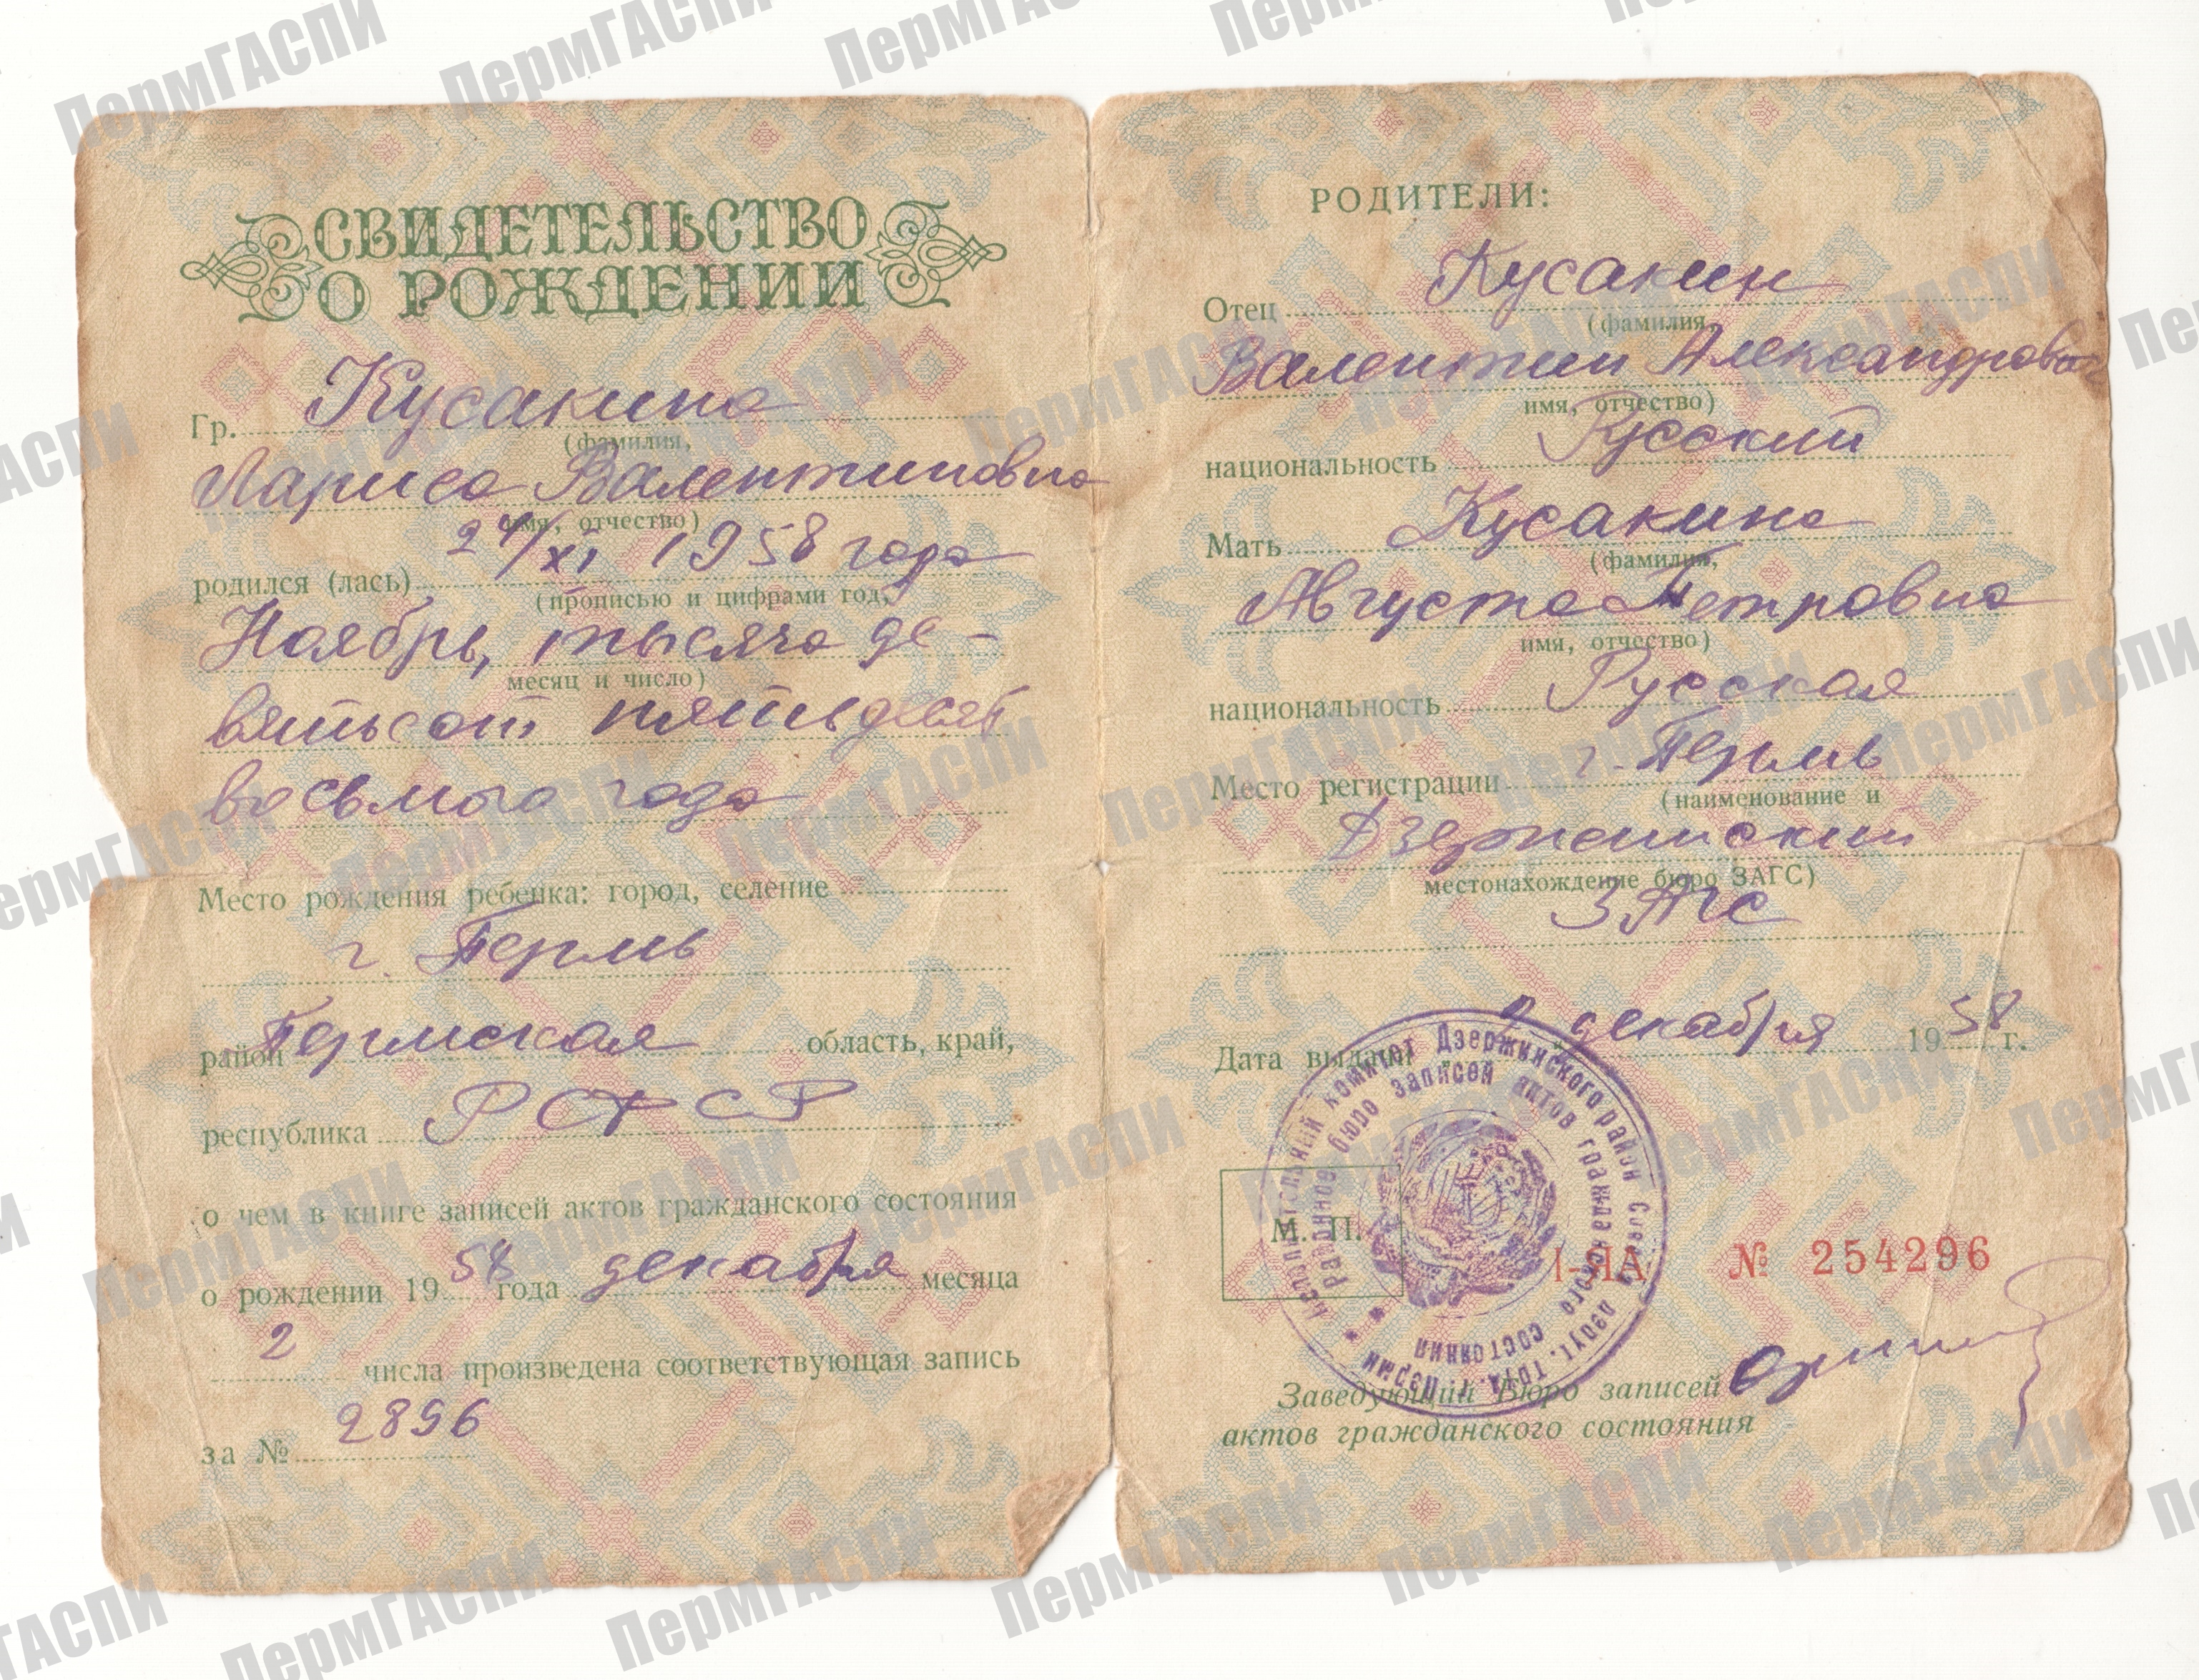 СВИДЕТЕЛЬСТВО
О РОЖДЕНИИ
Гр. Кусакина
(фамилия,
Лариса Валентиновна
имя, отчество)
родился (лась) 24/XI 1958 года
(прописью и цифрами год,
Ноябрь, тысяча де-
месяц и число)
вятьсот пятьдесят
восьмого года
Место рождения ребенка: город, селение
г. Пермь
район Пермская область, край,
республика РСФСР
о чем в книге записей актов гражданского состояния
о рождении 1958 года декабря месяца
2 числа произведена соответствующая запись
за № 2896
РОДИТЕЛИ:
Отец Кусакин
(фамилия,
Валентин Александрович
имя, отчество)
национальность Русский
Мать Кусакина
(фамилия,
Августа Петровна
имя, отчество)
национальность Русская
Место регистрации г. Пермь
(наименование и
Дзержинский
местонахождение бюро ЗАГС)
ЗАГС
Дата выдачи 2 декабря 1958 г.
М. П.
Исполнительный комитет Дзержинского район Совета депут. труд. г. Перми
Районное бюро записей актов гражданского состояния
I-ЯА № 254296
Заведующий Бюро записей
актов гражданского состояния
ПермГАСПИ